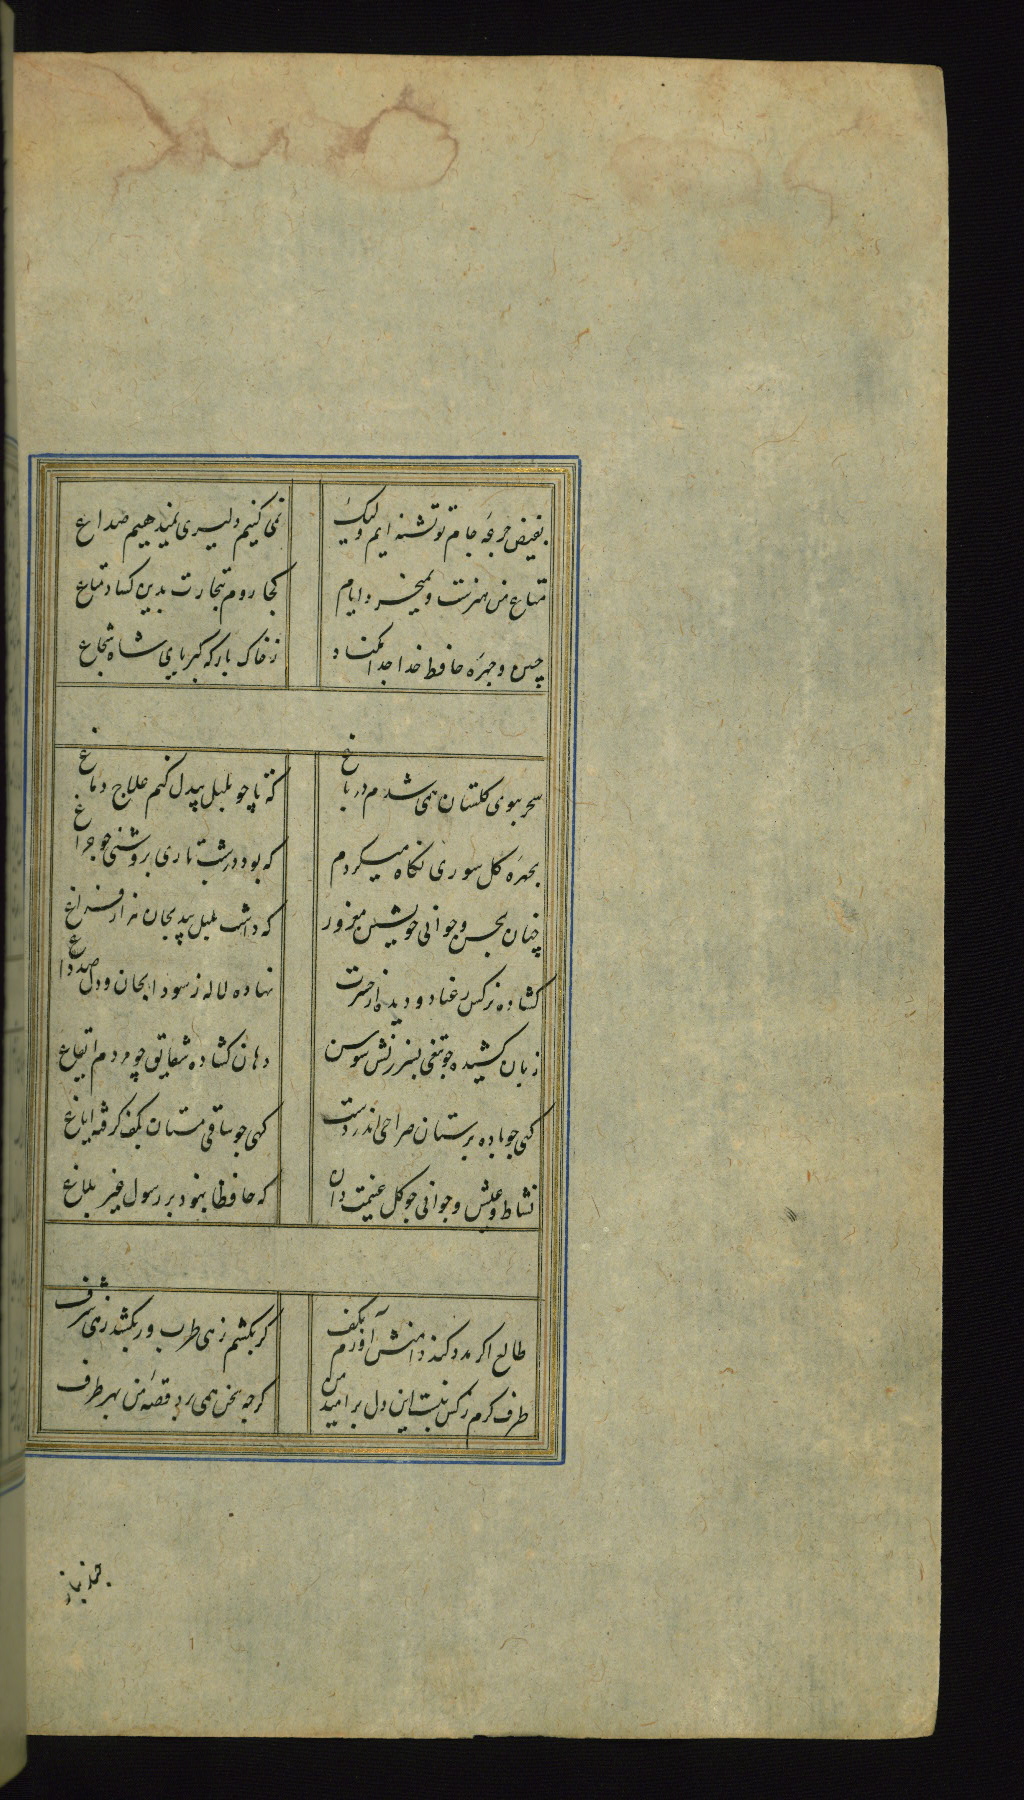 بفیض جرعهٔ جام تو تشنه ایم ولیک نمی کنیم دلیری نمیدهیم صداع
متاع من هنرست و نمیخرد ایام کجا روم بتجارت بدین کساد متاع
جبین و چهرهٔ حافظ خدا جدا مکناد ز خاک بارکه کبریای شاه شجاع
سحر ببوی کلستان همی شدم در باغ که تا چو بلبل بیدل کنم علاج دماغ
بچهرهٔ کل سوری نکاه میکردم که بود در شب تاری بروشنی چو چراغ
چنان بحسن و جوانی خویشتن مغرور که داشت بلبل بیدل بجان هزار فراغ
کشاده نرکس رعنا دو دیده از حسرت نهاده لاله ز سودا بجان و دل صد داغ
زبان کشیده چو تیغی بسرزنش سوسن دهان کشاده شقایق چو مردم ایقاع
کهی چو باده پرستان صراحی اندر دست کهی چو ساقی مستان بکف کرفته ایاغ
نشاط و عیش و جوانی چو کل غنیمت دان که حافظا نبود بر رسول غیر بلاغ
طالع اکر مدد کند دامنش آورم بکف کر بکشم زهی طرب ور بکشد زهی شرف
طرف کرم ز کس نبست این دل پر امید من کرچه سخن همی برد قصهٔ من بهر طرف